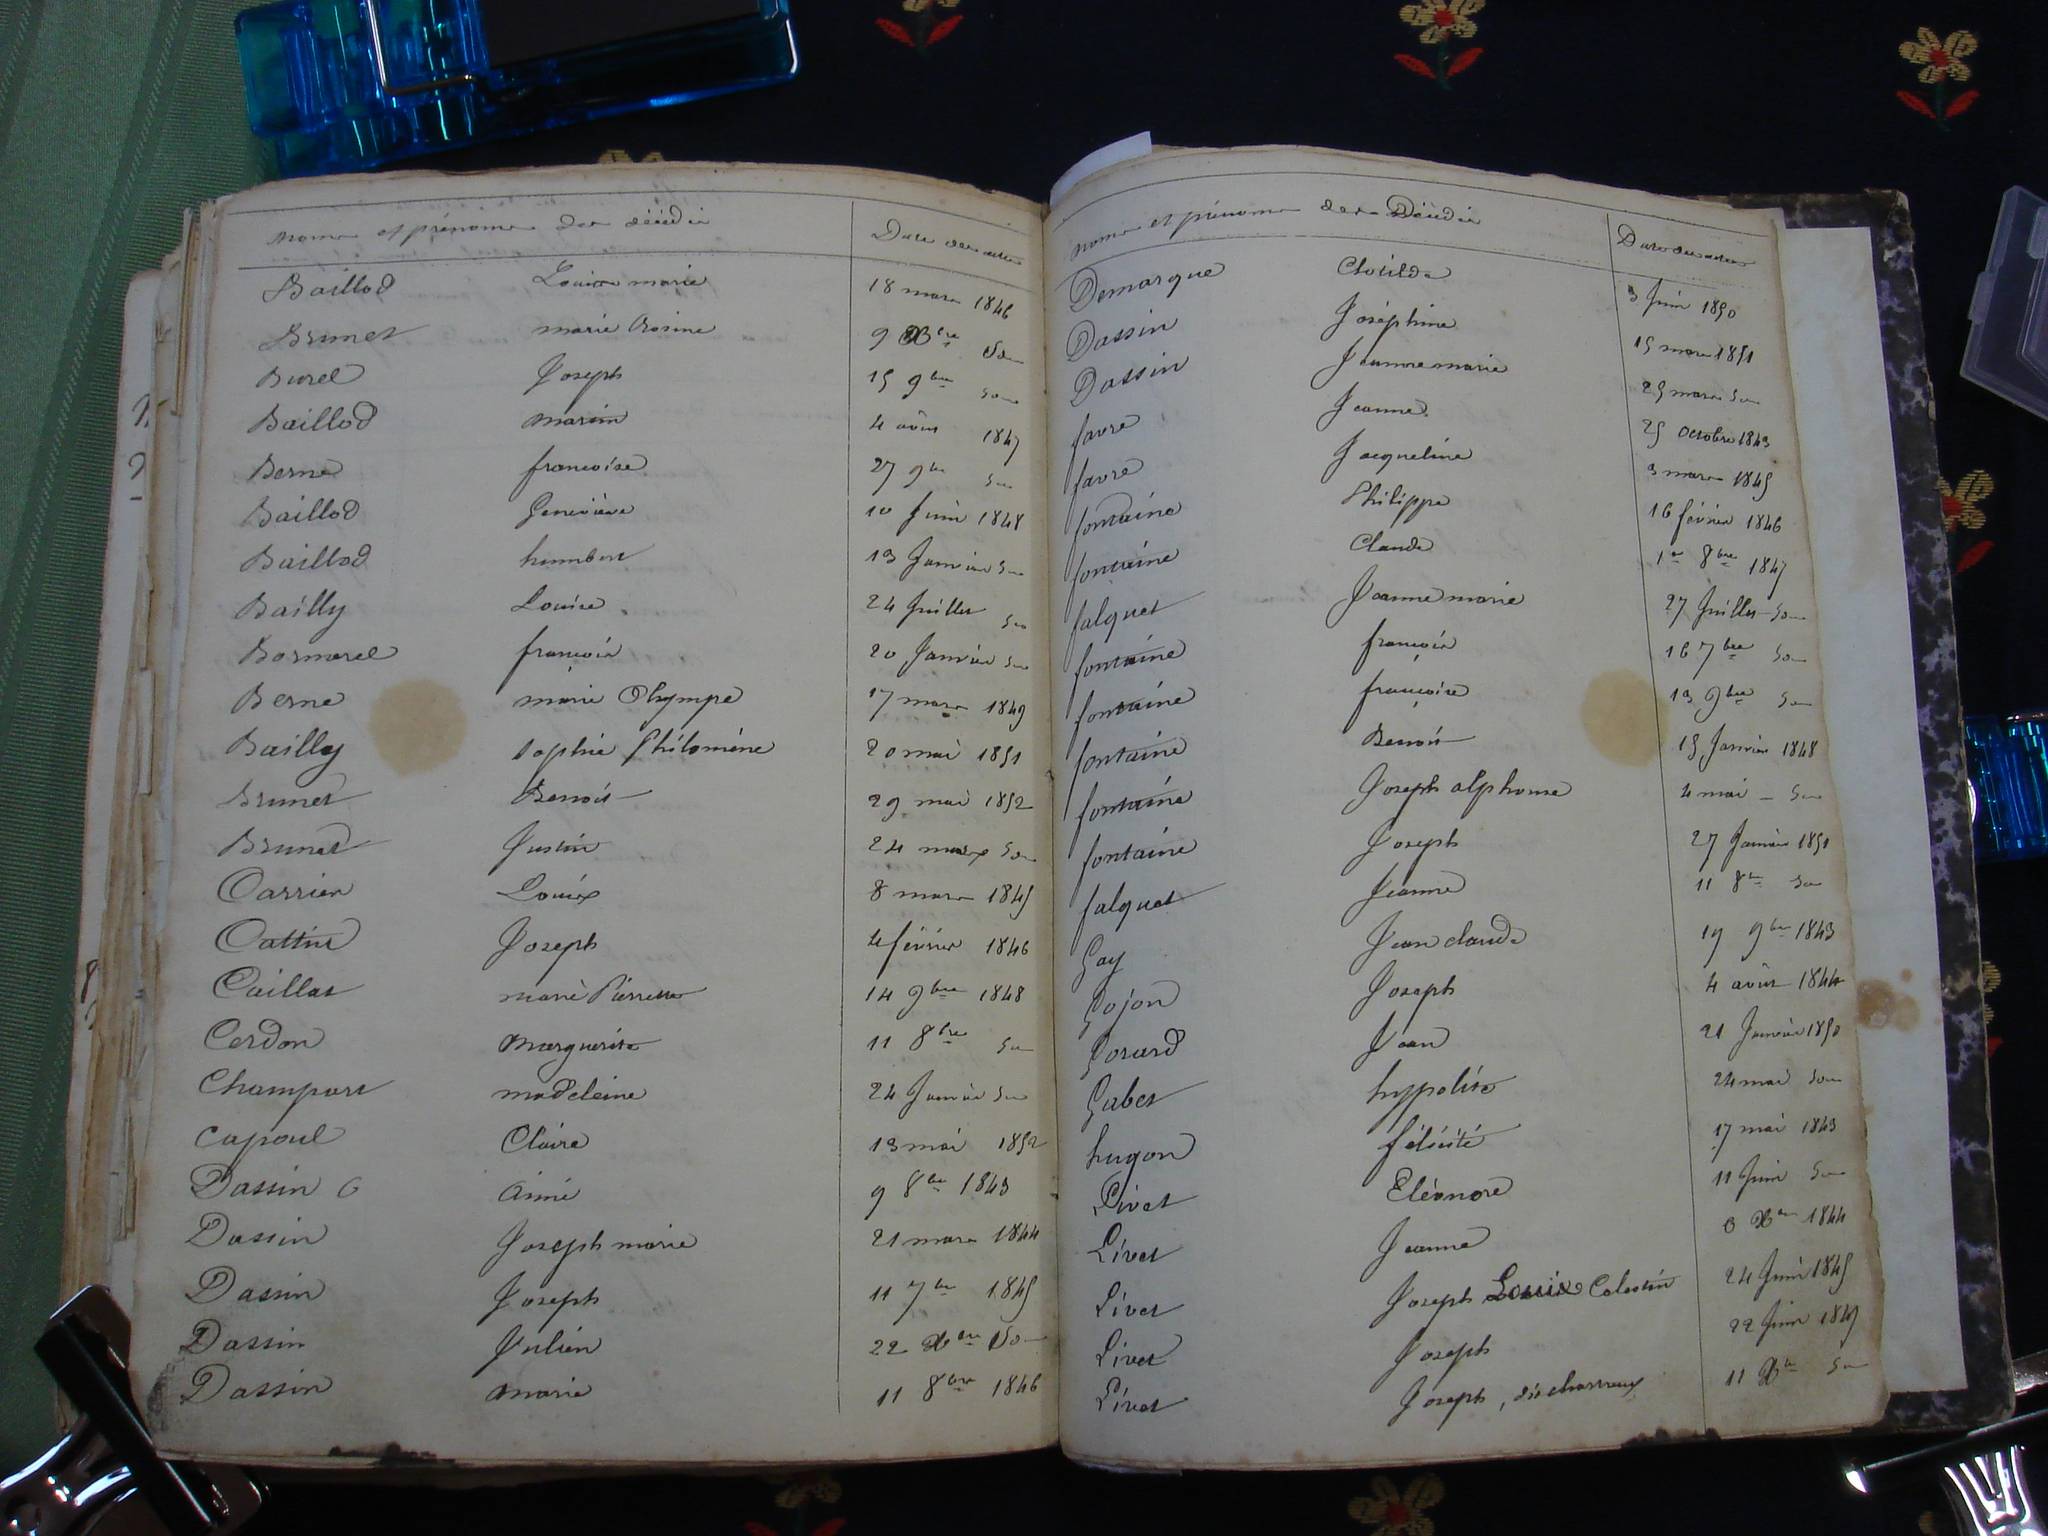 noms et prénoms des décédés Date des actes
Baillod Louise marie 18 mars 1846
Brunet marie Rosine 9 Xbre do
Burel Joseph 15 9bre do
Baillod marin 4 août 1847
Berne françoise 27 9bre do
Baillod Geneviève 10 Juin 1848
Baillod humbert 13 Janvier do
Bailly Louise 24 Juillet do
Bormarel françois 20 Janvier do
Berne marie Olympe 17 mars 1849
Bailly Sophie Philomène 20 mai 1851
Brunet Benoit 29 mai 1852
Brunet Justin 24 mars do
Carrier Louis 8 mars 1845
Cattin Joseph 4 février 1846
Caillat marie Pierrette 14 9bre 1848
Cerdon Marguerite 11 8bre do
Champart madeleine 24 Janvier do
Capoul Claire 13 mai 1852
Dassin Aimé 9 8bre 1843
Dassin Joseph marie 21 mars 1844
Dassin Joseph 11 7bre 1845
Dassin Julien 22 Xbre do
Dassin marie 11 8bre 1846
noms et prénoms des Décédés Date des actes
Demarque Clotilde 3 Juin 1850
Dassin Joséphine 15 mars 1851
Dassin Jeanne marie 25 mars do
favre Jeanne 25 Octobre 1843
favre Jacqueline 3 mars 1845
fontaine Philippe 16 février 1846
fontaine Claude 1er 8bre 1847
falquet Jeanne marie 27 Juillet do
fontaine françois 16 7bre do
fontaine françoise 13 9bre do
fontaine Benoit 15 Janvier 1848
fontaine Joseph alphonse 4 mai do
fontaine Joseph 27 Janvier 1851
falquet Jeanne 11 8bre do
Gay Jean claude 19 9bre 1843
Gojon Joseph 4 août 1844
Gorard Jean 21 Janvier 1850
Gabet hyppolite 24 mai do
hugon félicité 17 mai 1843
Livet Eléonore 11 Juin do
Livet Jeanne 6 Xbre 1844
Livet Joseph Louis Celestin 24 Juin 1845
Livet Joseph 22 Juin 1849
Livet Joseph, dit 11 Xbre do